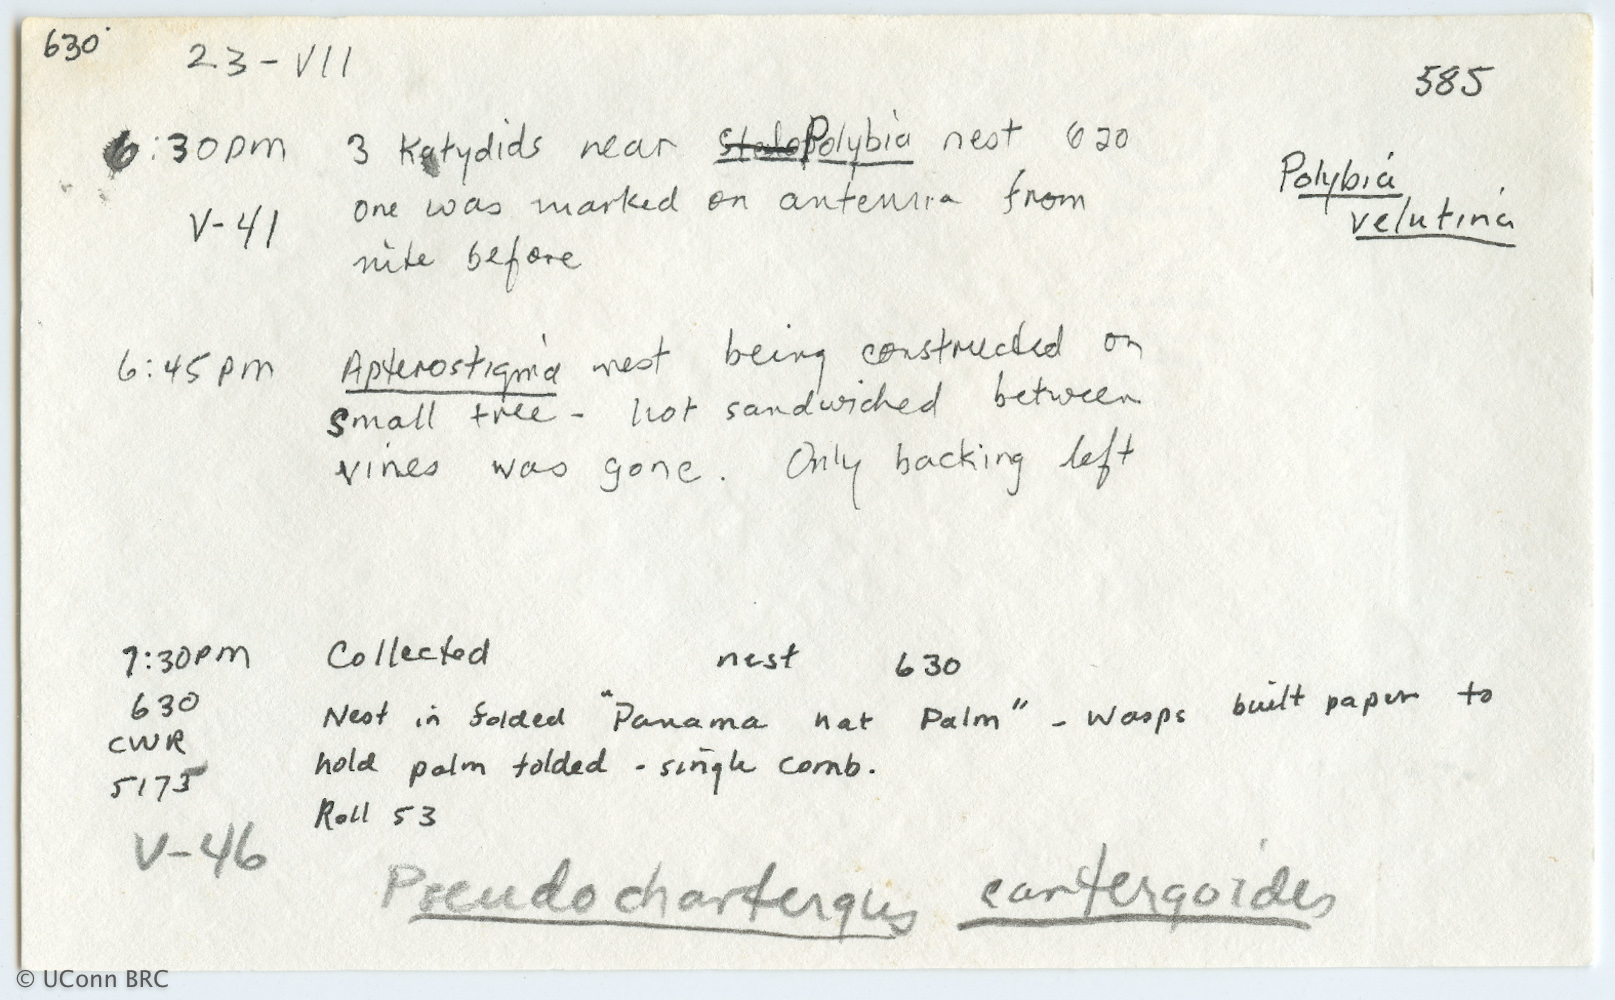 630
23-VII
585
6:30pm 3 Katydids near Stelo Polybia nest 620
one was marked on antenna from
V-41
nite before
Polybia
velutina
6:45pm Apterostigma nest being constructed on
small tree - not sandwiched between
vines was gone. Only backing left
7:30pm Collected nest 630
630 Nest in folded "Panama hat Palm" - Wasps built paper to
CWR hold palm folded - single comb.
5175 Roll 53
V-46
Pseudochartergus cartergoides
© UConn BRC